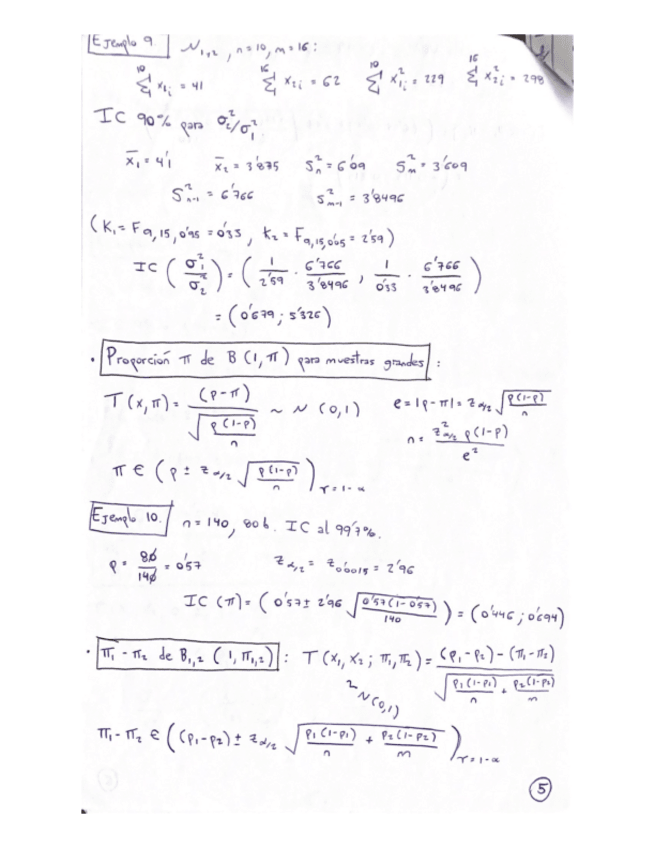 Ejemplo 9. N₁,₂, n=10, m=16:
∑₁¹⁰ x₁ᵢ = 41 ∑₁¹⁶ x₂ᵢ = 62 ∑₁¹⁰ x₁ᵢ² = 229 ∑₁¹⁶ x₂ᵢ² = 298
IC 90% para σ₂²/σ₁²
x̄₁ = 4'1 x̄₂ = 3'875 Sₙ² = 6'09 Sₘ² = 3'609
Sₙ₋₁² = 6'766 Sₘ₋₁² = 3'8496
(K₁ = F₉,₁₅,₀'₉₅ = 0'33, K₂ = F₉,₁₅,₀'₀₅ = 2'59)
IC (σ₁²/σ₂²) = (1/2'59 · 6'766/3'8496, 1/0'33 · 6'766/3'8496)
= (0'679; 5'326)
· Proporción π de B(1,π) para muestras grandes:
T(x,π) = (p-π)/√(p(1-p)/n) ~ N(0,1) e = |p-π| = z_α/2 √(p(1-p)/n)
n = z²_α/2 p(1-p)/e²
π ∈ (p ± z_α/2 √(p(1-p)/n))_γ=1-α
Ejemplo 10. n=140, 80 b. IC al 99'7%.
p = 80/140 = 0'57 z_α/2 = z_0'0015 = 2'96
IC (π) = (0'57 ± 2'96 √(0'57(1-0'57)/140)) = (0'446; 0'694)
· π₁-π₂ de B₁,₂ (1,π₁,₂): T(x₁,x₂; π₁,π₂) = (p₁-p₂)-(π₁-π₂)/√(p₁(1-p₁)/n + p₂(1-p₂)/m)
~ N(0,1)
π₁-π₂ ∈ ((p₁-p₂) ± z_α/2 √(p₁(1-p₁)/n + p₂(1-p₂)/m))_γ=1-α
5